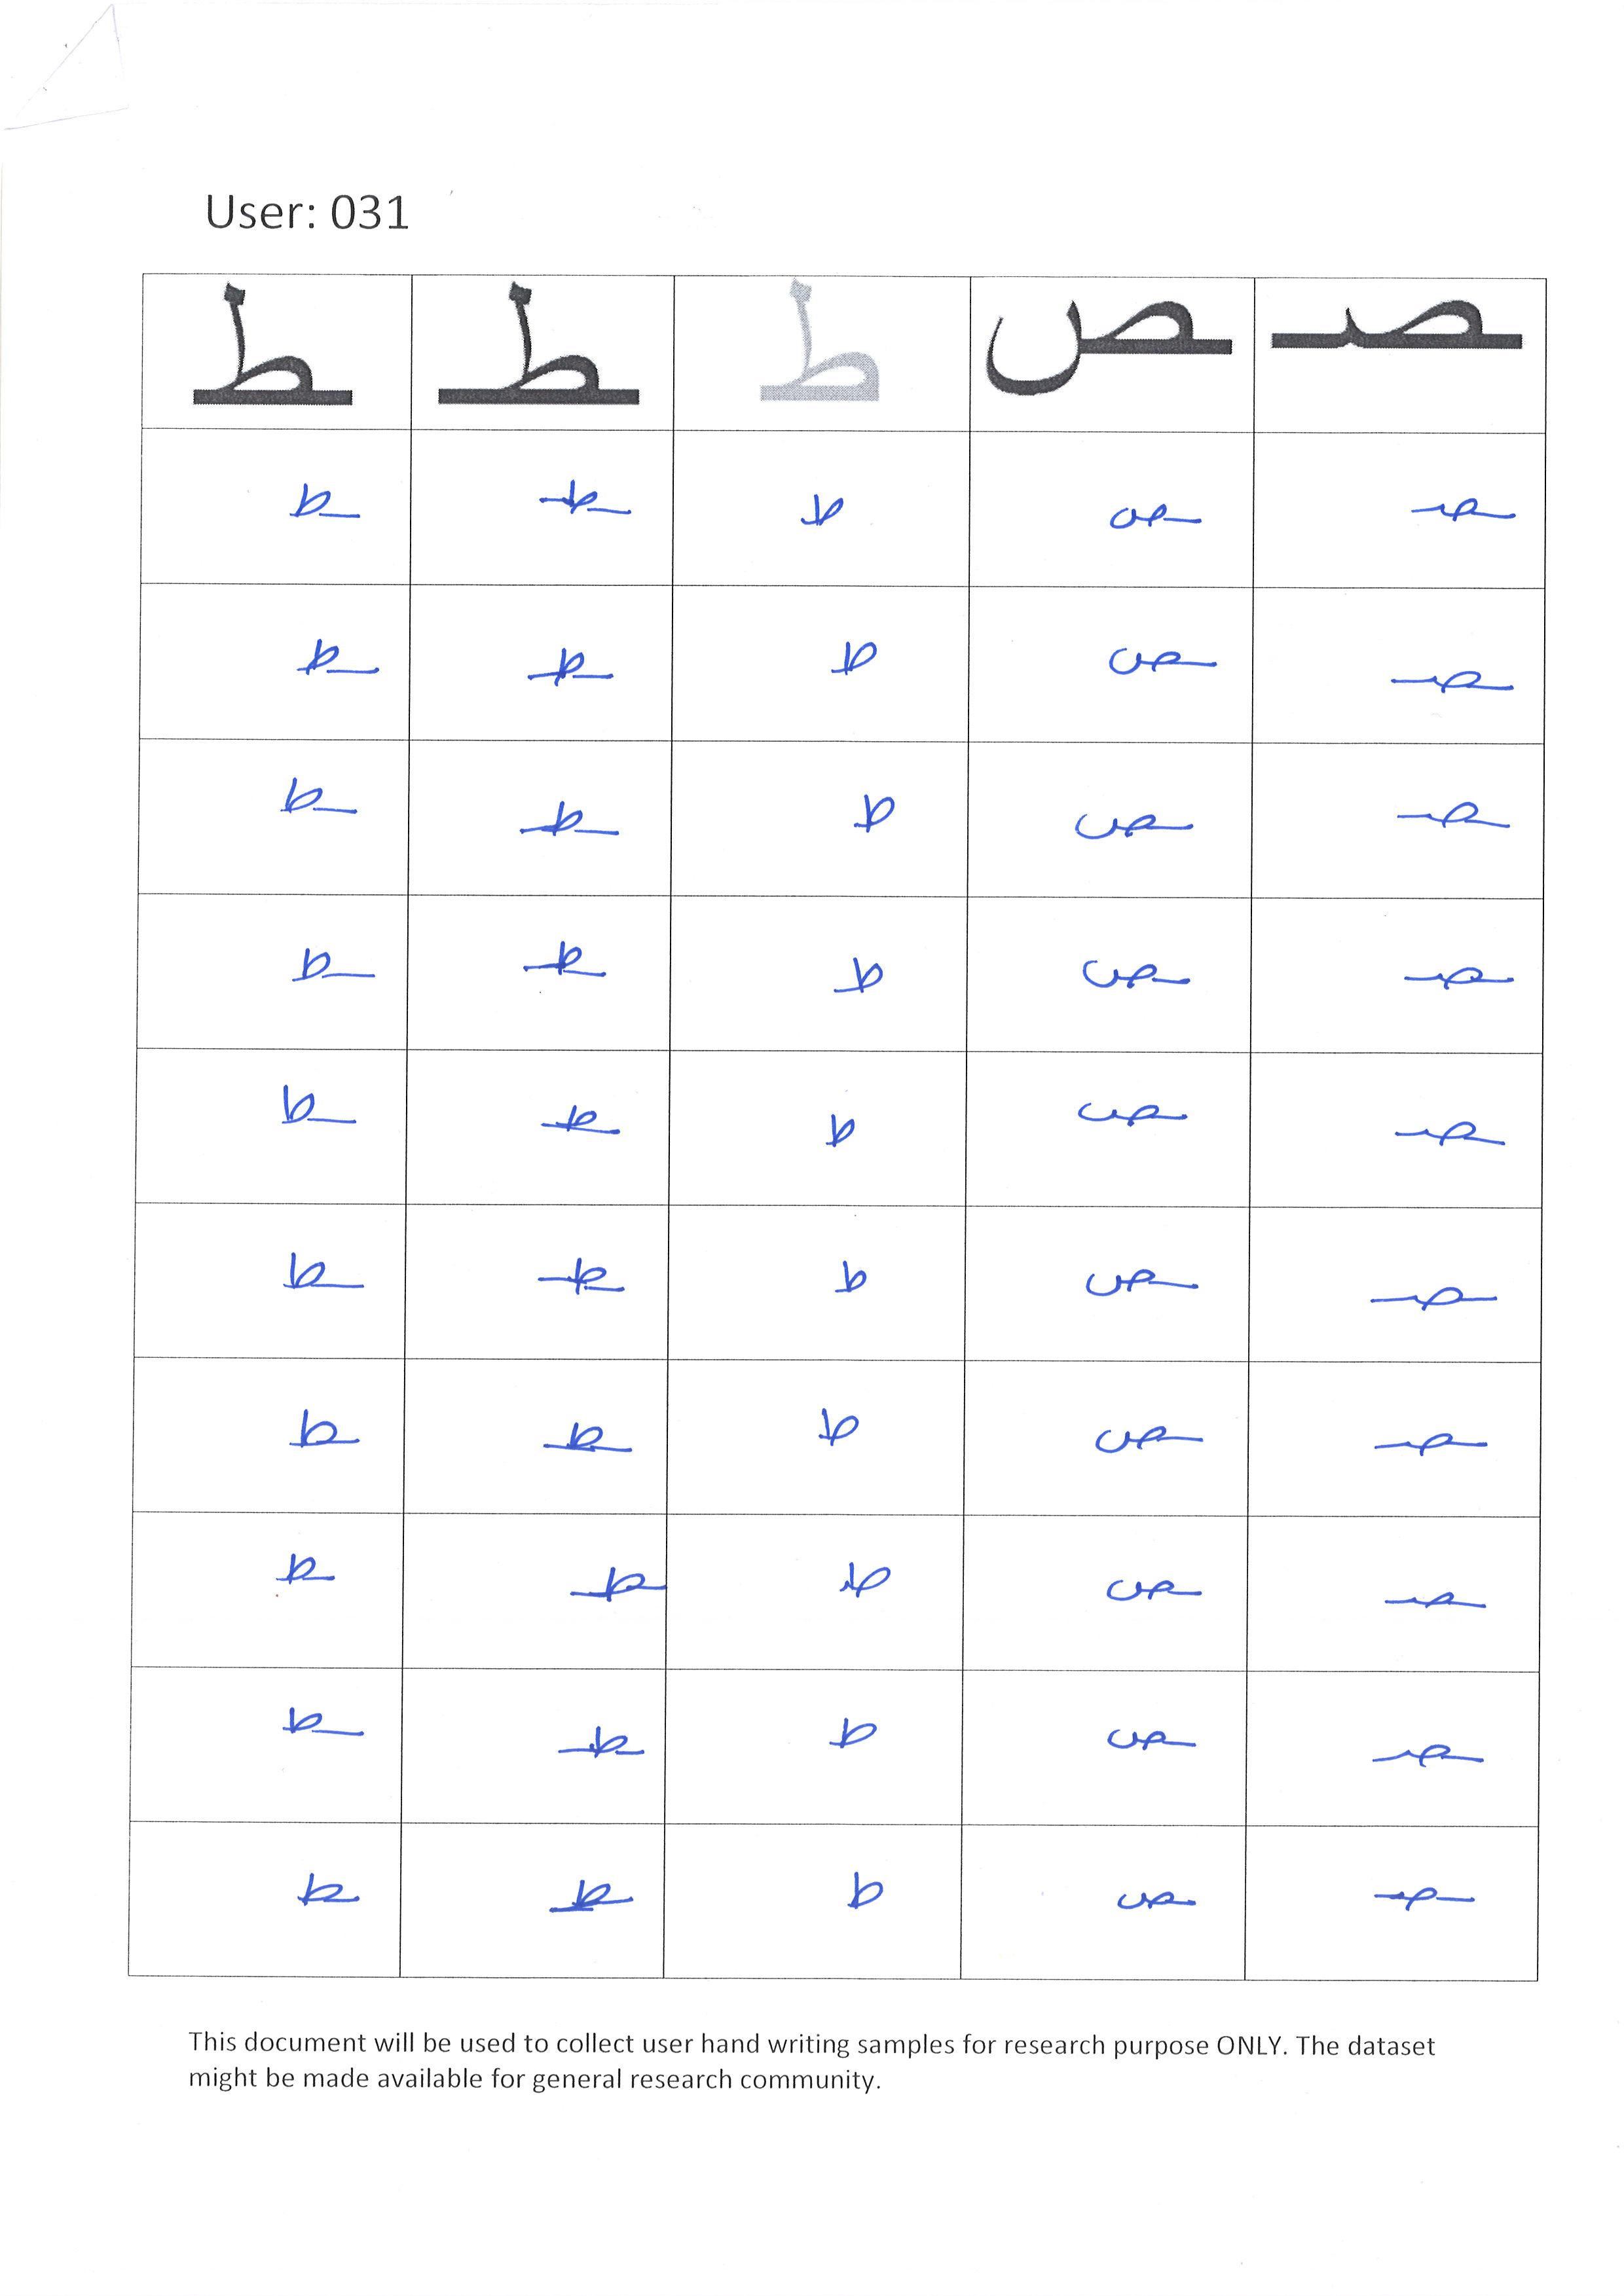 User: 031
ـصـ ـص ط ـطـ ـط
ـصـ ـص ط ـطـ ـط
ـصـ ـص ط ـطـ ـط
ـصـ ـص ط ـطـ ـط
ـصـ ـص ط ـطـ ـط
ـصـ ـص ط ـطـ ـط
ـصـ ـص ط ـطـ ـط
ـصـ ـص ط ـطـ ـط
ـصـ ـص ط ـطـ ـط
ـصـ ـص ط ـطـ ـط
ـصـ ـص ط ـطـ ـط
This document will be used to collect user hand writing samples for research purpose ONLY. The dataset
might be made available for general research community.